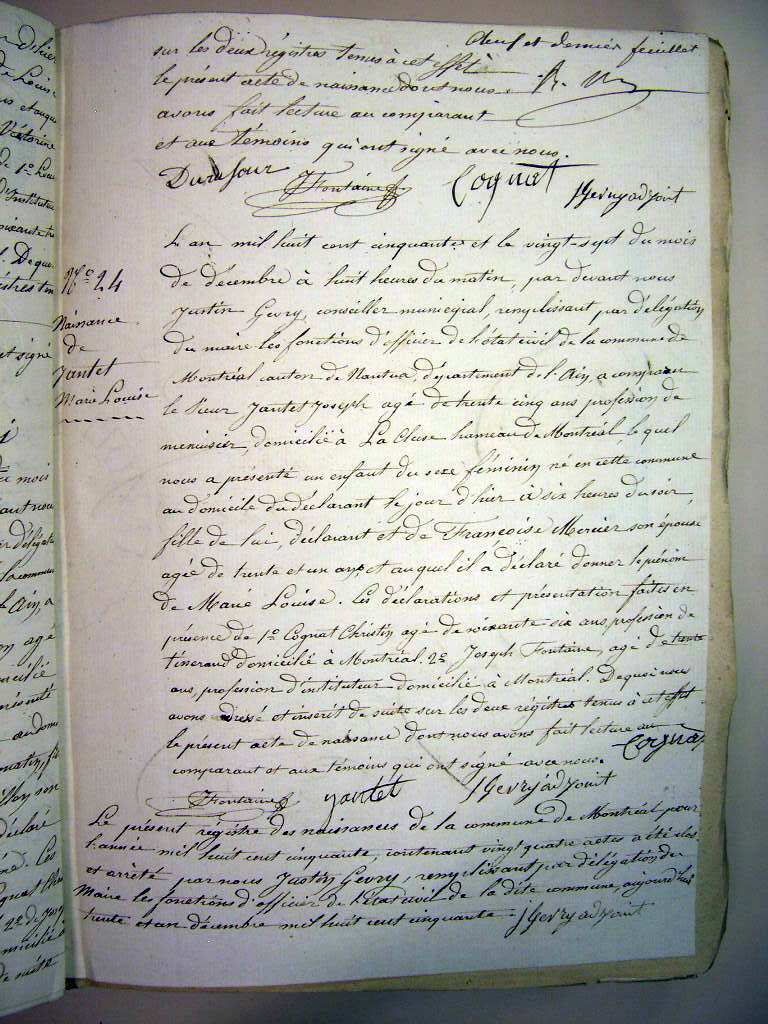 neuf et dernier feuillet
sur les deux régistres tenus à cet effet
le présent acte de naissance dont nous
avons fait lecture au comparant
et aux témoins qui ont signé avec nous.
Dufour JFontaine Cognat JGevry adjoint
N.º 24
Naissance
de
Jantet
Marie Louise
L'an mil huit cent cinquante et le vingt-sept du mois
de décembre à huit heures du matin, par devant nous
Justin Gevry, conseiller municipal, remplissant par délégation
du maire les fonctions d'officier de l'état civil de la commune de
Montréal canton de Nantua, département de l'Ain, a comparu
le sieur Jantet Joseph agé de trente cinq ans profession de
menuisier, domicilié à La Cluse hameau de Montréal, le quel
nous a présenté un enfant du sexe féminin né en cette commune
au domicile du déclarant le jour d'hier à six heures du soir
fille de lui, déclarant et de Francoise Mercier son épouse
agée de trente et un ans, et auquel il a déclaré donner le prénom
de Marie Louise. Les déclarations et présentation faites en
présence de 1º Cognat Christin agé de soixante six ans profession de
domicilié à Montréal. 2º Joseph Fontaine, agé de trente
ans, profession d'instituteur domicilié à Montréal. De quoi nous
avons dressé et inscrit de suite sur les deux régistres tenus à cet effet
le présent acte de naissance dont nous avons fait lecture au
comparant et aux témoins qui ont signé avec nous. Cognat
JFontaine jantet JGevry adjoint
Le présent régistre des naissances de la commune de Montréal pour
l'année mil huit cent cinquante, contenant vingt quatre actes a été clos
et arrêté par nous Justin Gevry, remplissant par délégation du
Maire les fonctions d'officier de l'état civil de la dite commune, aujourd'hui
trente et un décembre mil huit cent cinquante JGevry adjoint